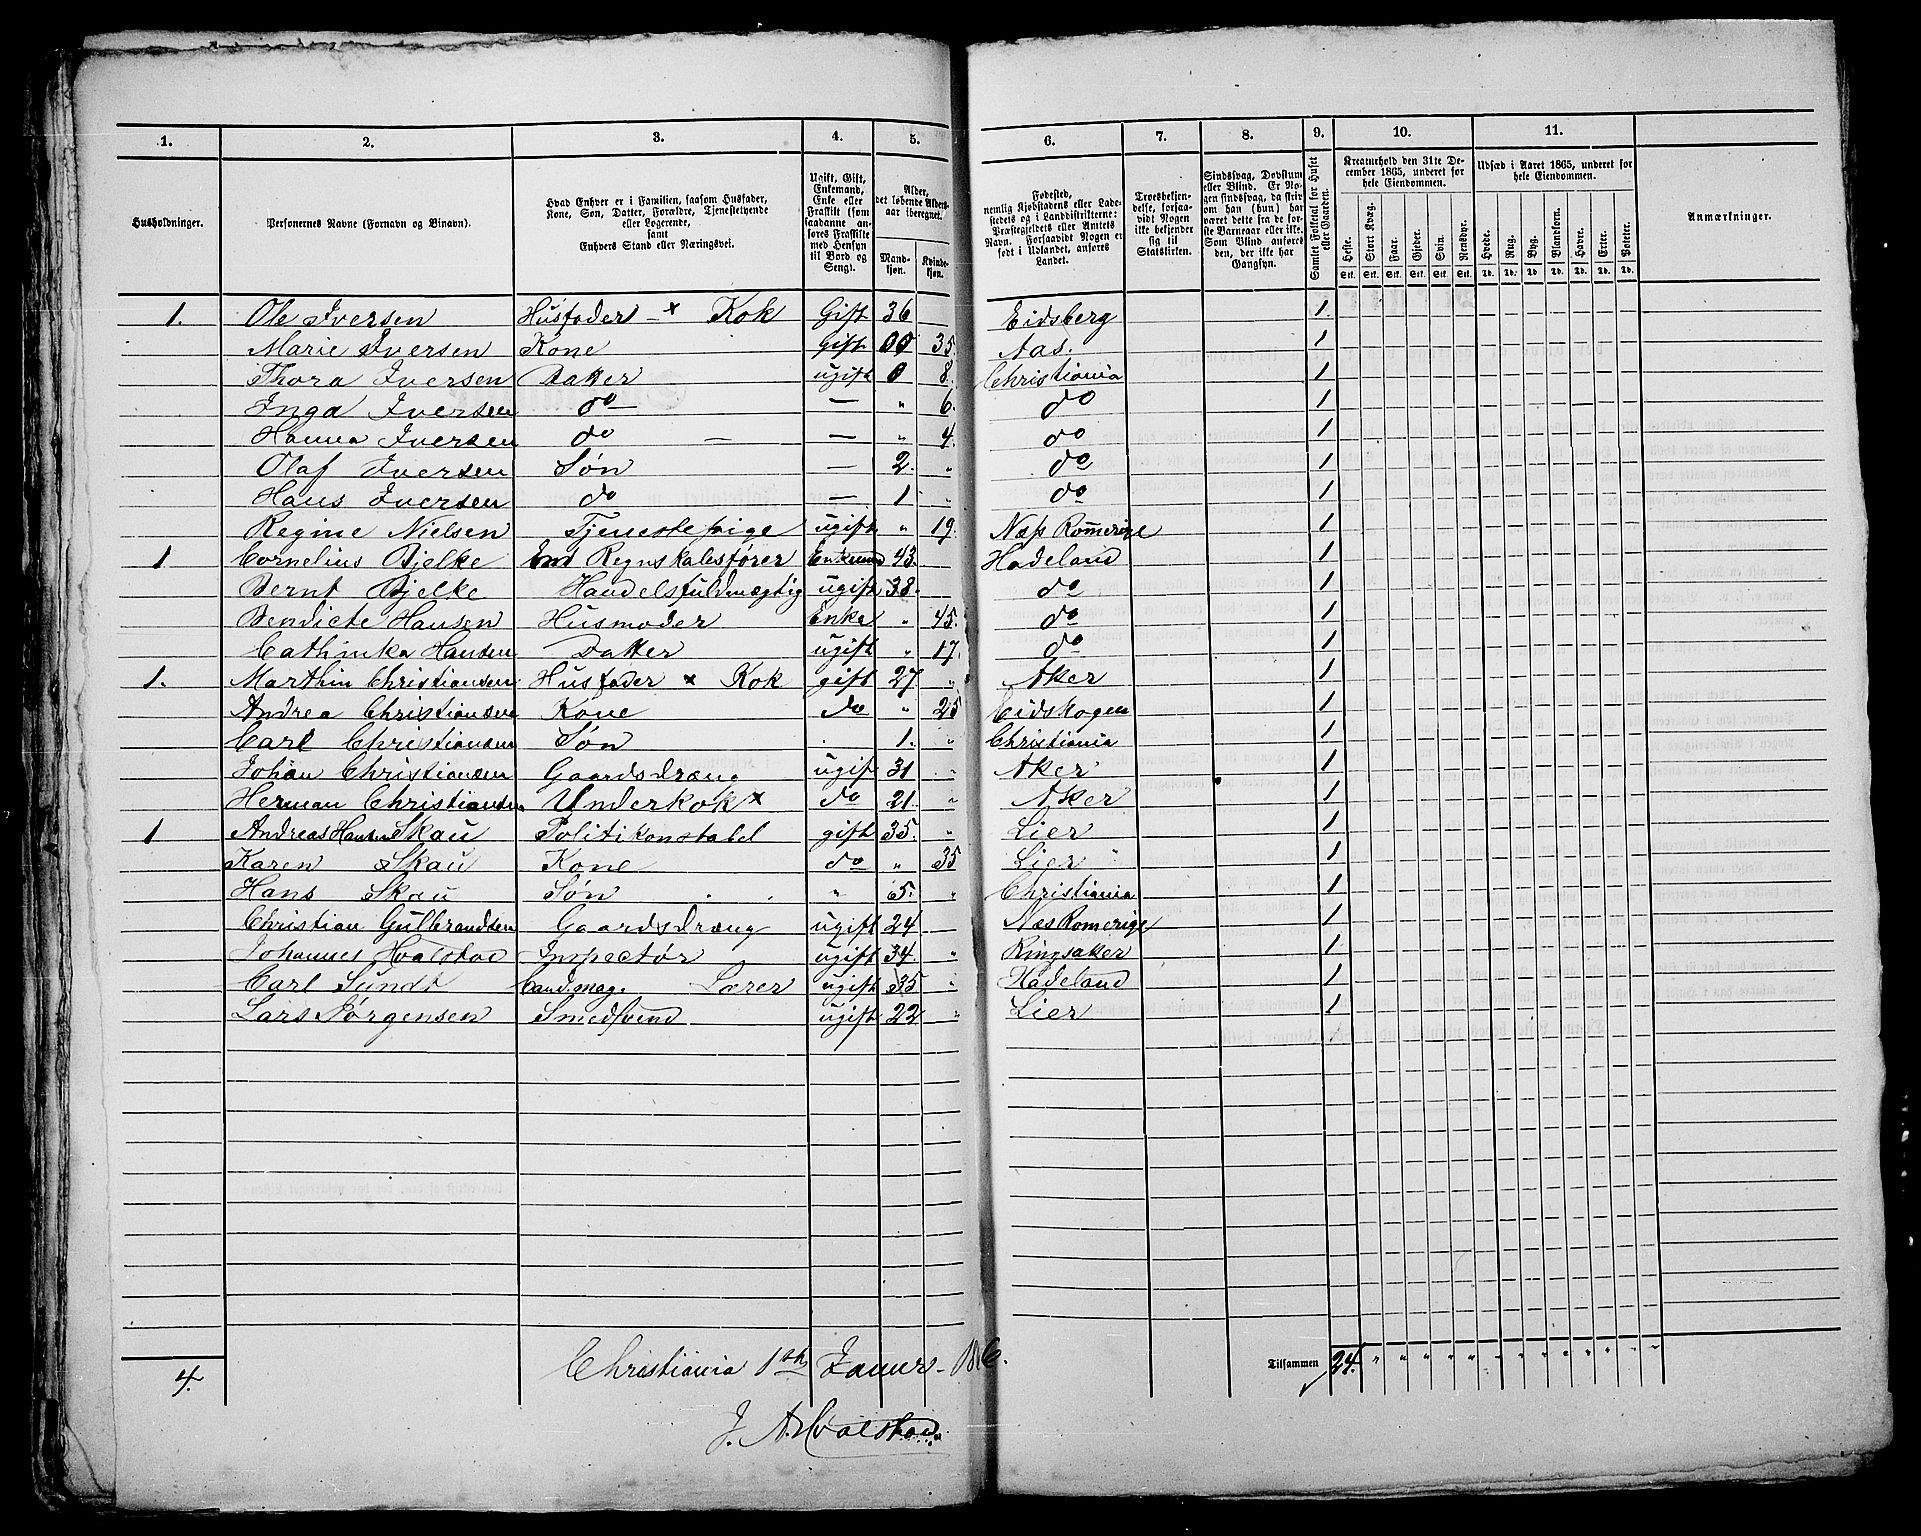 1. 2. 3. 4. 5. 6. 7. 8. 9. 10. 11.
Husholdninger.
Personernes Navne (Fornavn og Binavn).
Hvad Enhver er i Familien, saasom Husfader, Kone, Søn, Datter, Forældre, Tjenestetyende eller Logerende, samt Enhvers Stand eller Næringsvei.
Ugift, Gift, Enkemand, Enke eller Fraskilt (som saadanne anføres Fraskilte med Hensyn til Bord og Seng).
Alder, det løbende Aldersaar iberegnet.
Mandkjøn. Kvindekjøn.
Fødested, nemlig Kjøbstadens eller Ladestedets og i Landdistrikterne: Præstegjeldets eller Amtets Navn. Forsaavidt Nogen er født i Udlandet, anføres Landet.
Troesbekjendelse, forsaavidt Nogen ikke bekjender sig til Statskirken.
Sindssvag, Døvstum eller Blind. Er Nogen sindssvag, da skrives om han (hun) har været dette fra de første Barneaar eller ikke. Som Blind anføres den, der ikke har Gangsyn.
Samlet Folketal for Huset eller Gaarden.
Kreaturhold den 31te December 1865, underet for hele Eiendommen.
Heste. Stort Kvæg. Faar. Gjeder. Svin. Rensdyr.
Stk. Stk. Stk. Stk. Stk. Stk.
Udsæd i Aaret 1865, underet for hele Eiendommen.
Hvede. Rug. Byg. Blandkorn. Havre. Erter. Poteter.
Td. Td. Td. Td. Td. Td. Td.
Anmærkninger.
1. Ole Iversen Husfader — × Kok Gift 36 Eidsberg 1
Marie Iversen Kone Gift 00 35. Aas. 1
Thora Iversen Datter ugift 0 8. Christiania 1
Inga Iversen do — — " 6. do 1
Hanna Iversen do — — " 4. do 1
Olaf Iversen Søn — 2. " do 1
Hans Iversen do — 1 " do 1
Regine Nielsen Tjenestepige ugift " 19. Næs Romerige 1
1 Cornelius Bjelke Regnskabsfører Enkemd 43. Hadeland 1
Bernt Bjelke Handelsfuldmægtig ugift 38. do 1
Bendicte Hansen Husmoder Enke " 45. do 1
Cathinka Hansen Datter ugift " 17. do 1
1. Marthin Christiansen Husfader × Kok gift 27 " Aker 1
Andrea Christiansen Kone do " 25 Eidskogen 1
Carl Christiansen Søn . 1. " Christiania 1
Johan Christiansen Gaardsdræng ugift 31 " Aker 1
Herman Christiansen Underkok × do 21. " Aker 1
1 Andreas Hansen Skau Politikonstabel gift 35. " Lier 1
Karen Skau Kone do " 35 Lier " 1
Hans Skau Søn " 5. " Christiania 1
Christian Gulbrandsen Gaardsdræng ugift 24 Næs Romerige 1
Johannes Hvalstad Inspectør ugift 34. " Ringsaker 1
Carl Sundt Cand. mag. Lærer ugift 35 " Hadeland 1
Lars Jørgensen Smedsvend ugift 22 " Lier 1
4. Tilsammen 24.
Christiania 1ste Januar 186
J. A. Hvalstad